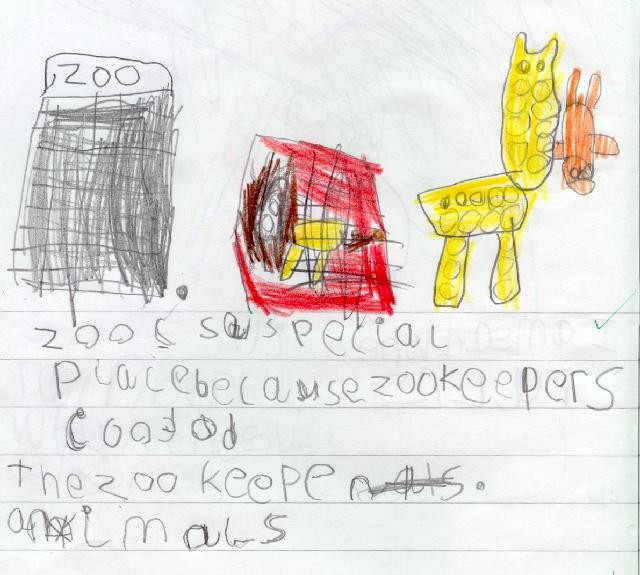 ZOO
zoo special
placebecausezookeepers
coofod
the zoo keepe
animals